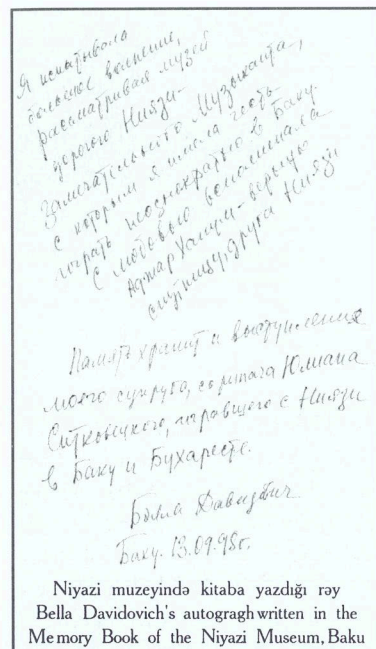 Я испытывала
большое волнение,
рассматривая музей
дорогого Ниязи-
Замечательного Музыканта,
с которым я имела честь
играть неоднократно в Баку.
С любовью вспоминала
Аджар Ханум - верную
спутницу-друга Ниязи
Память хранит и выступления
моего супруга, скрипача Юлиана
Ситковецкого, игравшего с Ниязи
в Баку и Бухаресте.
Бэлла Давидович
Баку. 13.09.98г.
Niyazi muzeyində kitaba yazdığı rəy
Bella Davidovich's autogragh written in the
Memory Book of the Niyazi Museum, Baku